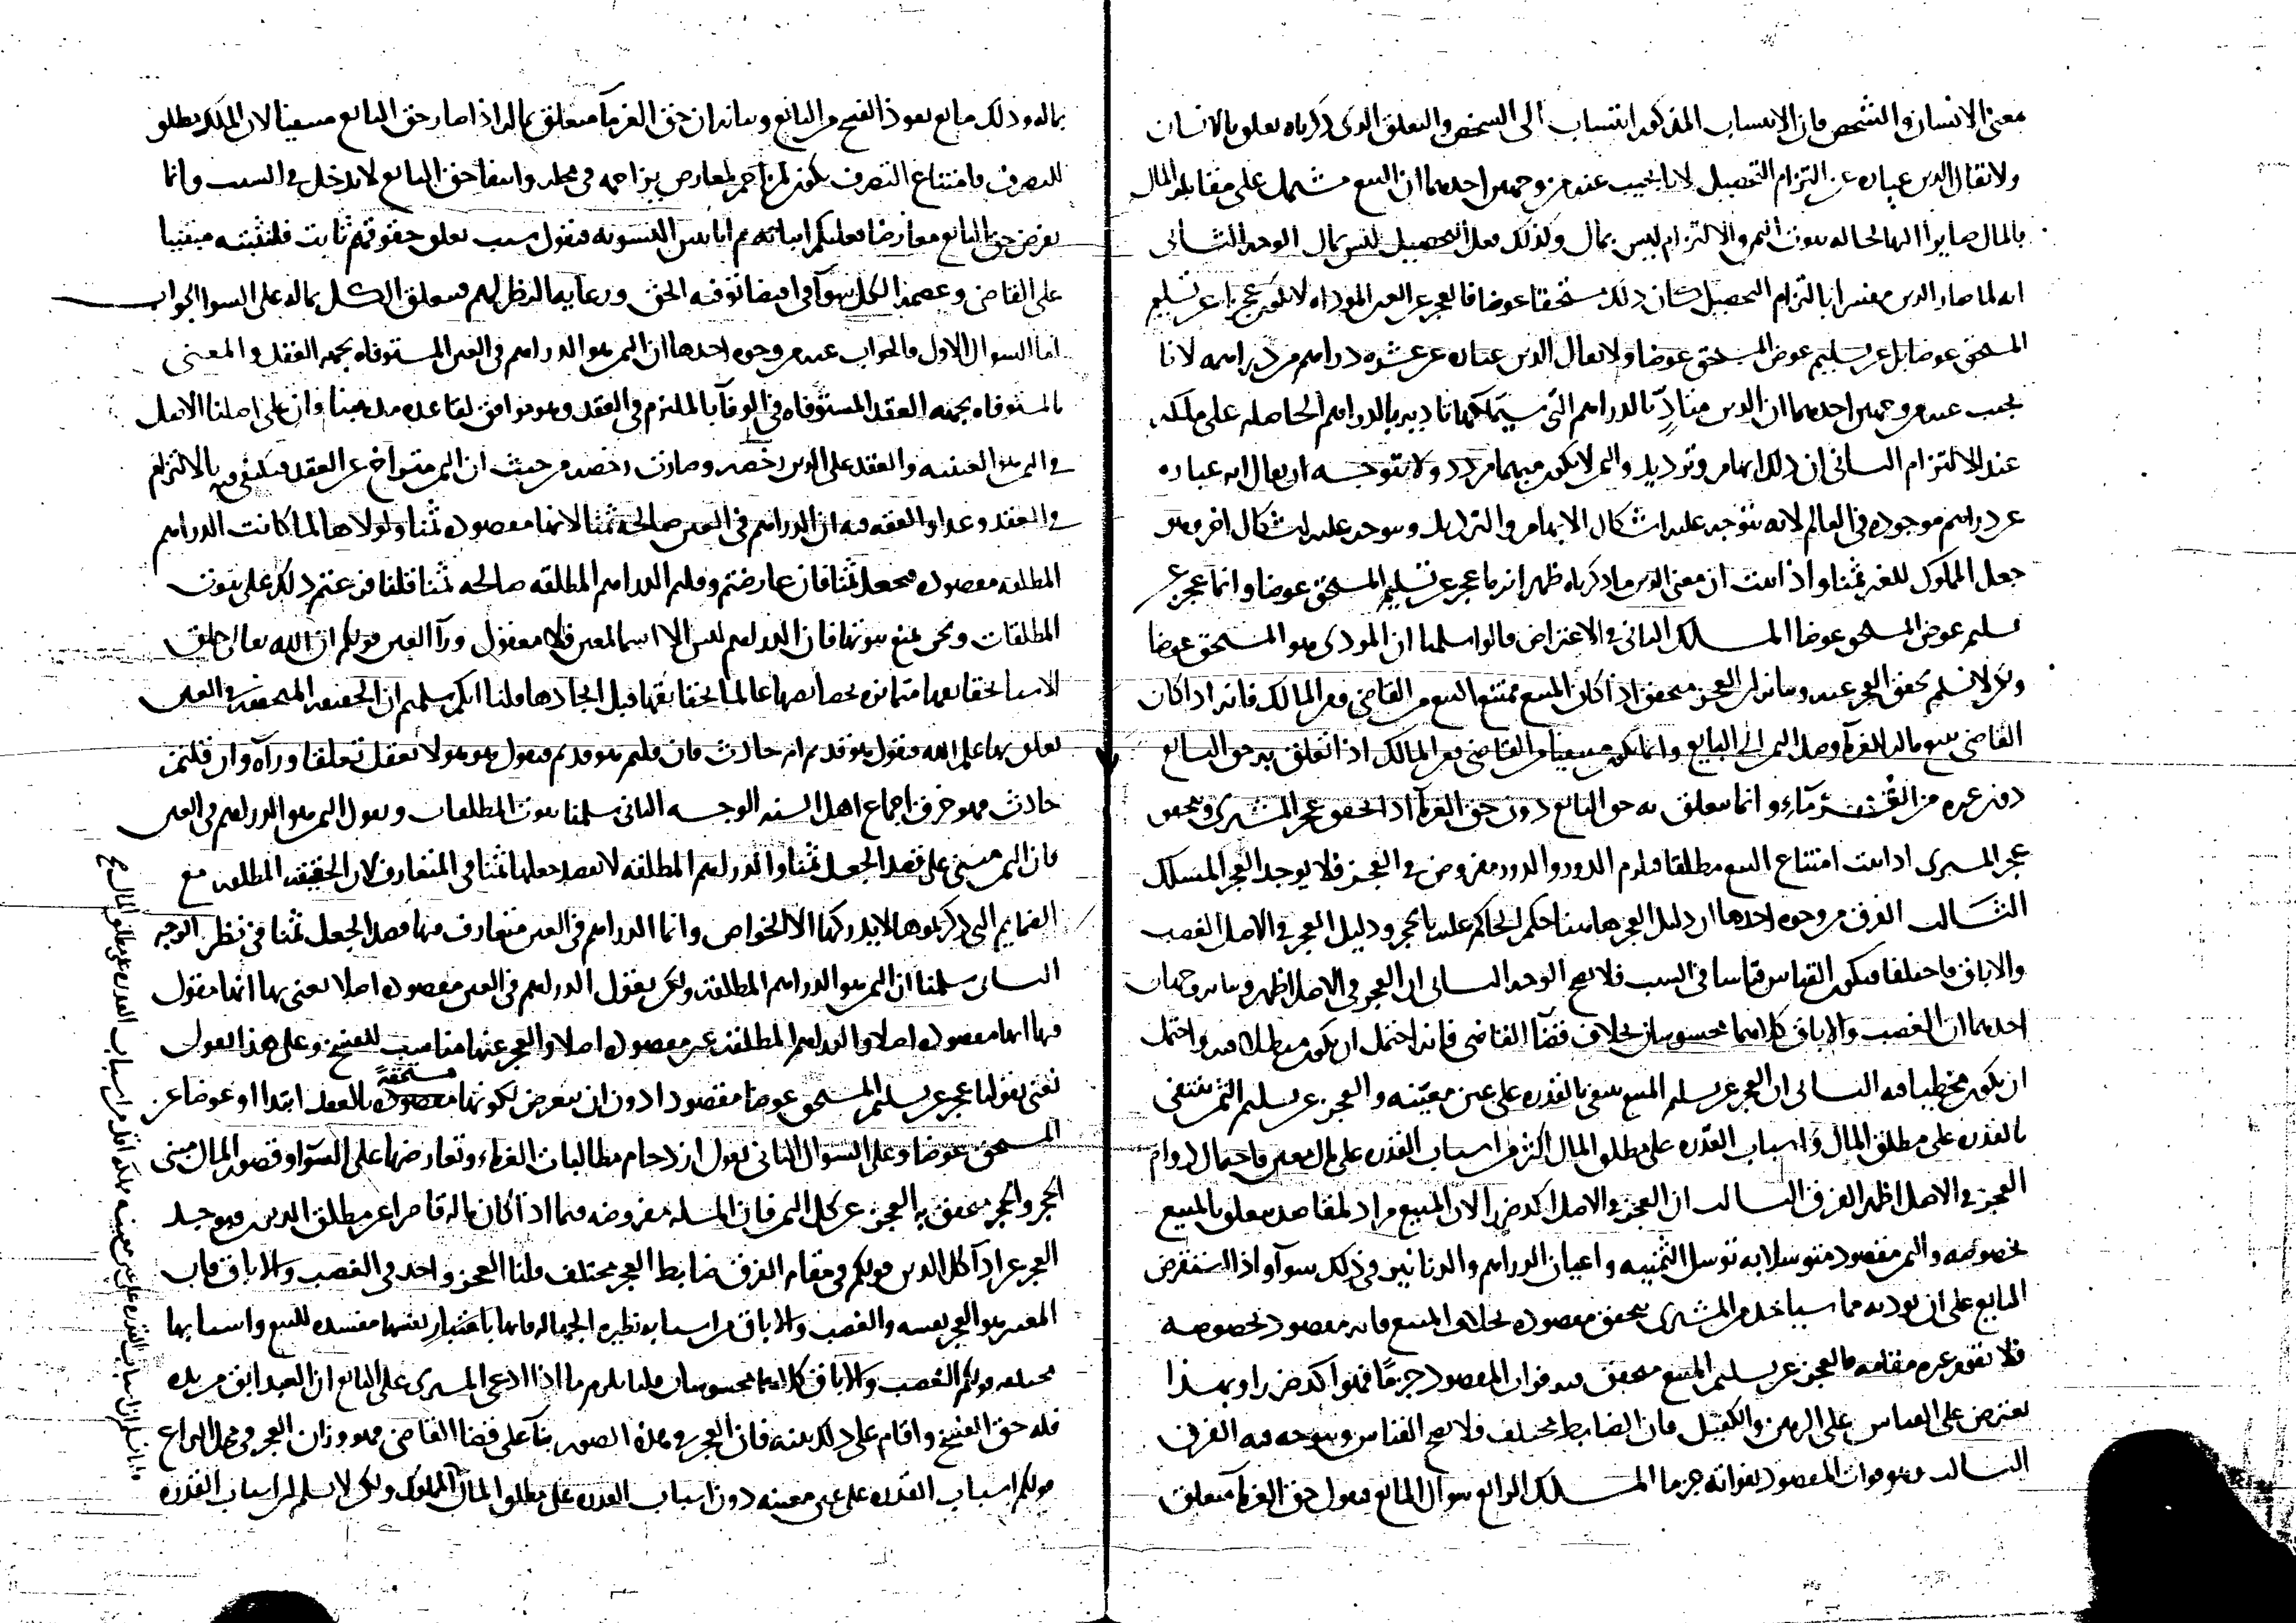 معنى الانسان والشخص فان الانتساب المذكور انتساب الى الشخص والتعلق الذى ذكرناه تعلق بالانسان
ولا يقال الدين عبارة عن التزام التحصيل لانا نجيب عنه من وجهين احدهما ان البيع مشتمل على مقابلة المال
بالمال صابرا اليها لحاله ثبوت الثمن والالتزام ليس بمال وكذلك فعل التحصيل ليس بمال الوجه الثانى
انه لما صار الدين مفسرا بالتزام التحصيل كان ذلك مستحقا عوضا فالعجز عن العين المؤداه لا يكون عجزا عن تسليم
المستحق عوضا بل عن تسليم عوض المستحق عوضا ولا يقال الدين عبارة عن عشرة دراهم من دراهمه لانا
نجيب عنه من وجهين احدهما ان الدين متادٍّ بالدراهم التى سيتملكها تاديه بالدراهم الحاصله على ملكه
عند الالتزام الثانى ان ذلك ابهام وترديد والثمن لا يكون مبهما مردد ولا يتوجه ان يقال انه عباره
عن دراهم موجوده فى العالم لانه يتوجه عليه اشكال الابهام والترديد ويتوجه عليه اشكال اخر وهو
جعل المملوك للغير ثمنا واذا ثبت ان معنى الدين ما ذكرناه ظهر انه ما عجز عن تسليم المستحق عوضا وانما عجز عن
تسليم عوض المستحق عوضا المسلك الثانى فى الاعتراض قالوا سلمنا ان المودى هو المستحق عوضا
ولكن لا نسلم تحقق العجز عنه وبيانه ان العجز يتحقق اذا كان المبيع ممتنع البيع من القاضى ومن المالك فانه اذا كان
القاضى يبيع مال الغرماء وصل الثمن الى البايع وانما يكون ممتنعا من القاضى ومن المالك اذا تعلق به حق البايع
دون غيره من الغرماء وانما يتعلق به حق البايع دون حق الغرماء اذا تحقق عجز المشترى ويتحقق
عجز المشترى اذا ثبت امتناع البيع مطلقا فيلزم الدور والدور مفروض فى العجز فلا يوجد العجز المسلك
الثالث الفرق من وجوه احدها ان دليل العجز هاهنا حكم الحاكم عليه بالحجر ودليل العجز فى الاصل الغصب
والاباق فاختلفا فيكون القياس قياسا فى السبب فلا يصح الوجه الثانى ان العجز فى الاصل اظهر وبيانه من وجهين
احدهما ان الغصب والاباق كلاهما محسوسان بخلاف قضاء القاضى فانه احتمل ان يكون مبطلا فيه واحتمل
ان يكون مخطيا فيه الثانى ان العجز عن تسليم المبيع ينتفى بالقدره على عين معيّنه والعجز عن تسليم الثمن ينتفى
بالقدره على مطلق المال واسباب القدره على مطلق المال اكثر من اسباب القدره على مال معين فاحتمال دوام
العجز فى الاصل اظهر الفرق الثالث ان العجز فى الاصل اكد ضررا لان المبيع مراد لمقاصد يتعلق بالمبيع
بخصوصه والثمن مقصود متوسلا به توسل الثمنيه واعيان الدراهم والدنانير فى ذلك سواء واذا استقرض
البايع على ان يوديه مما سياخذ من المشترى يتحقق مقصوده بخلاف المبيع فانه مقصود بخصوصه
فلا يقوم غيره مقامه فالعجز عن تسليم المبيع يتحقق فيه فوات المقصود جزمًا فهو اكد ضررا وبهذا
يعترض على القياس على الرهن والكفيل فان الضابط مختلف فلا يصح القياس ويتوجه فيه الفرق
الثالث وهو فوات المقصود بفواته جزما المسلك الرابع سوال المانع فنقول حق الغرماء متعلق
بماله وذلك مانع نفوذ الفسخ من البايع وبيانه ان حق الغرماء متعلق بماله اذا صار حق البايع منتفيا لان الملك مطلق
للتصرف وامتناع التصرف يكون لمزاحم لمعارض يزاحمه فى محله وانتفاء حق البايع لا يدخل فى السبب وانما
يفرض حق البايع معارضا فعليكم اثباته ثم اثباته بين التسويه فنقول سبب تعلق حقوقهم ثابت فلنثبته مبتنيا
على القاضى وعصمة الكل سواء فى اقتضا توفيه الحق ورعايه النظر لهم فيتعلق الكل بماله على السوا الجواب
اما السوال الاول فالجواب عنه من وجوه احدها ان الثمن هو الدراهم فى العين المستوفاه بجهه العقد والمعنى
بالمستوفاه بجهه العقد المستوفاه فى الوفاء بالملتزم فى العقد وهو موافق لقاعده مذهبنا وان على اصلنا الاصل
فى الثمن هو العينيه والعقد على الدين رخصه وصارت رخصه من حيث ان الثمن متراخ عن العقد فيكتفى فيه بالالتزام
فى العقد وعدا والفقه فيه ان الدراهم فى العين صالحه ثمنا لانها مقصوده ثمنا ولولاها لما كانت الدراهم
المطلقه مقصوده فجعل ثمنا فان عارضتم وقلتم الدراهم المطلقه صالحه ثمنا قلنا فرعتم ذلك على ثبوت
المطلقات ونحن نمنع ثبوتها فان الدراهم ليس الا اسما لمعين فلا معقول وراء العين قولكم ان الله تعالى خلق
الاشيا بحقايقها متمايزه بخصايصها عالما بحقايقها قبل ايجادها قلنا انكم سلمتم ان الحقيقه المتحققه فى العين
تعلق بها علم الله فنقول هو قديم ام حادث فان قلتم هو قديم فنقول هو هو ولا يعقل تعلقا وراه وان قلتم
حادث فهو خرق اجماع اهل السنه الوجه الثانى سلمنا ثبوت المطلقات ونقول الثمن هو الدراهم فى العين
فان الثمن مبنى على قصد الجعل ثمنا والدراهم المطلقه لا يقصد جعلها ثمنا فى المتعارف لان الحقيقه المطلقه مع
الضمايم التى ذكرتموها لا يدركها الا الخواص وانما الدراهم فى العين متعارف فيها قصد الجعل ثمنا فى نظر الوجه
الثانى سلمنا ان الثمن هو الدراهم المطلقه ولكن نقول الدراهم فى العين مقصوده اصلا يعنى بها انها مقول
فيها انها مقصوده اصلا والدراهم المطلقه غير مقصوده اصلا والعجز عنها مناسب للفسخ وعلى هذا نقول
نعنى بقولنا عجز عن تسليم المستحق عوضا مقصودا دون ان نتعرض لكونها مستحقةً بالعقد ابتدا او عوضا عن
المستحق عوضا وعلى السوال الثانى نقول ازدحام مطالبات الغرماء وتعارضها على السوا وقصور المال مبنى
الحجر والحجر متحقق به العجز عن كل الثمن فان المسله مفروضه فيما اذا كان ماله قاصرا عن مطلق الدين فيوجد
العجز عن اداء كل الدين قولكم فى مقام الفرق ضابط العجز مختلف قلنا العجز واحد فى الغصب والاباق فاب
المعتبر هو العجز نفسه والغصب والاباق من اسبابه نظيره الجهاله فانها باعتبار نفسها مفسده للبيع واسبابها
مختلفه قولكم الغصب والاباق كلاهما محسوسان قلنا يلزم ما اذا ادعى المشترى على البايع ان العبد ابق من يده
فله حق الفسخ واقام على ذلك بينه فان العجز فى هذه الصوره بناء على قضا القاضى فهو وزان العجز فى محل النزاع
قولكم اسباب القدره على عين معينه دون اسباب القدره على مطلق المال المملوك ولكن لا نسلم ان اسباب القدره